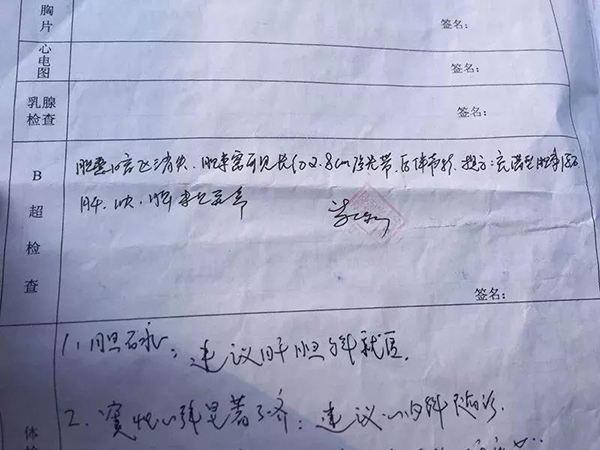 胸片 签名：
心电图 签名：
乳腺检查 签名：
B超检查
胆囊内 消失，胆囊窝可见长约2.8cm强光带，后伴声影，提示：充满型胆囊结石
肝、 、脾 未见异常
签名：
1、胆石症：建议肝胆外科就医。
2、窦性心律显著不齐：建议心内科随诊。
体